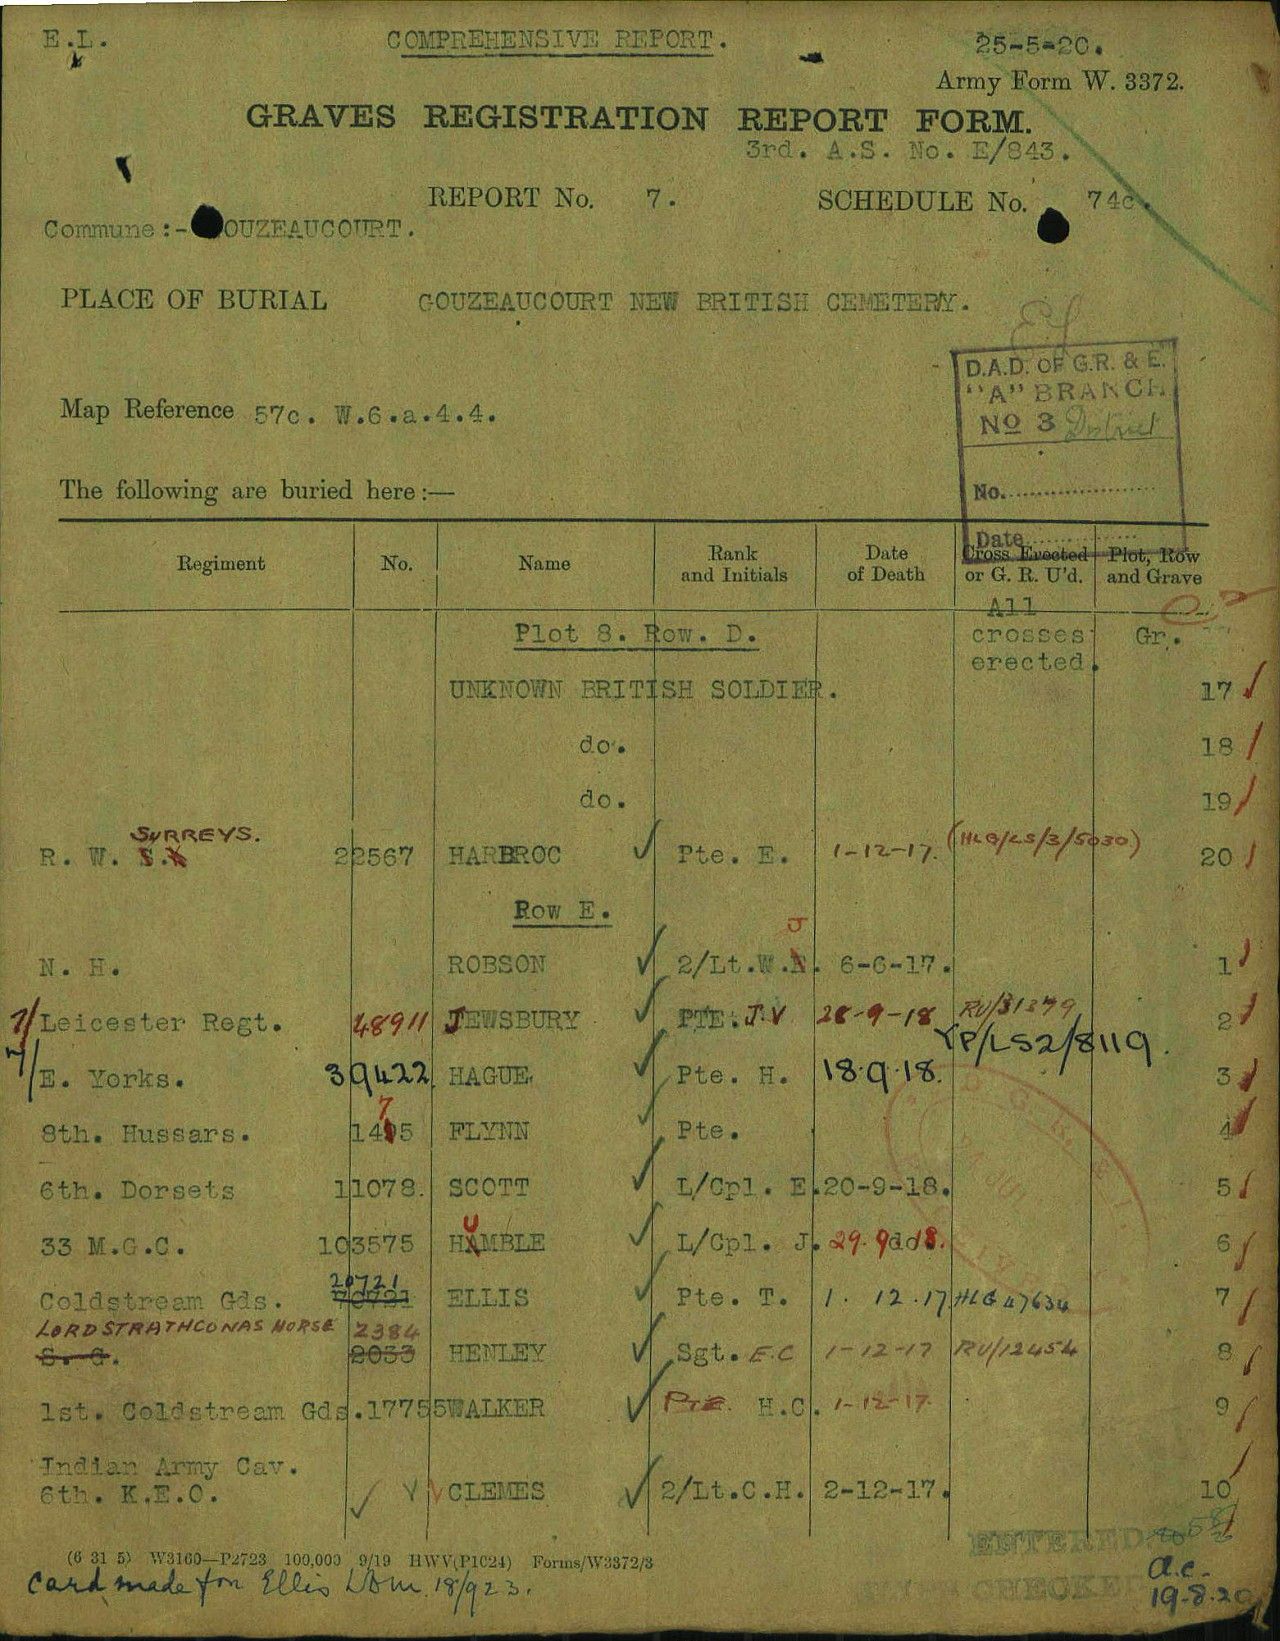 E.L.
COMPREHENSIVE REPORT.
25-5-20.
Army Form W. 3372.
GRAVES REGISTRATION REPORT FORM.
3rd. A.S. No. E/843.
REPORT No. 7.
SCHEDULE No. 74c.
Commune:- OUZEAUCOURT.
PLACE OF BURIAL GOUZEAUCOURT NEW BRITISH CEMETERY.
D.A.D. OF G.R. & E.
"A" BRANCH
No 3 District
No.
Date
Map Reference 57c. W.6.a.4.4.
The following are buried here:—
Regiment No. Name Rank and Initials Date of Death Cross Erected or G. R. U'd. Plot, Row and Grave
Plot 8. Row. D. All crosses erected. Gr.
UNKNOWN BRITISH SOLDIER. 17
do. 18
do. 19
SURREYS.
R. W. S. 22567 HARBROC Pte. E. 1-12-17. (HLG/LS/3/5030) 20
Row E.
N. H. ROBSON 2/Lt.W.J. 6-6-17. 1
7/Leicester Regt. 48911 JEWSBURY PTE. J.V 28-9-18 RU/31379 2
7/E. Yorks. 39422 HAGUE. Pte. H. 18.9.18. YP/LS2/8119. 3
8th. Hussars. 1475 FLYNN Pte. 4
6th. Dorsets 11078. SCOTT L/Cpl. E. 20-9-18. 5
33 M.G.C. 103575 HUMBLE L/Cpl. J. 29.9.18. 6
20721
Coldstream Gds. 70721 ELLIS Pte. T. 1. 12.17 HLG 47634 7
LORD STRATHCONAS HORSE 2384
S. G. 2033 HENLEY Sgt. E.C 1-12-17 RU/12454 8
1st. Coldstream Gds. 17755 WALKER Pte. H.C. 1-12-17. 9
Indian Army Cav.
6th. K.E.O. CLEMES 2/Lt.C.H. 2-12-17. 10
ENTERED
CHECKED
(6 31 5) W3160—P2723 100,000 9/19 HWV(P1624) Forms/W3372/3
Card made for Ellis 18/9/23.
a.c.
19.8.20